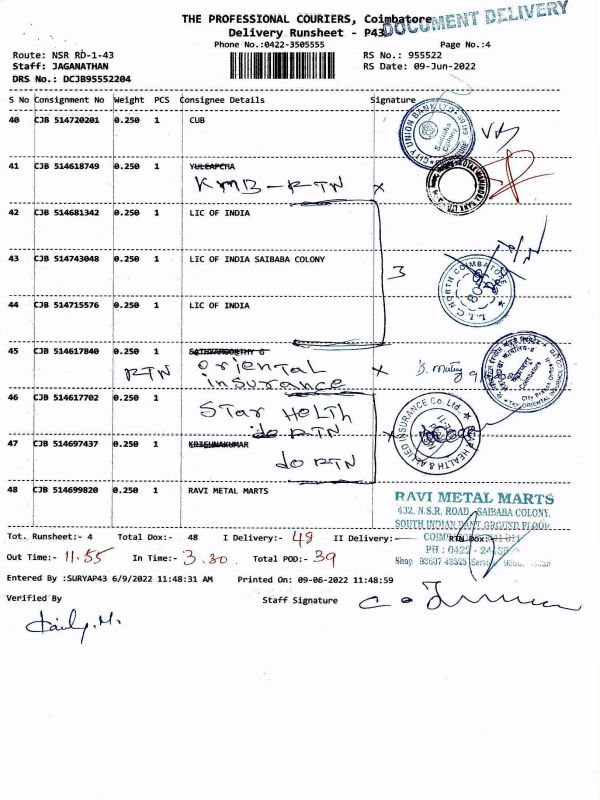 THE PROFESSIONAL COURIERS, Coimbatore
DOCUMENT DELIVERY
Delivery Runsheet - P43
Phone No.:0422-3505555
Page No.:4
Route: NSR RD-1-43
RS No.: 955522
Staff: JAGANATHAN
RS Date: 09-Jun-2022
DRS No.: DCJB95552204
S No Consignment No Weight PCS Consignee Details Signature
40 CJB 514720201 0.250 1 CUB
CITY UNION BANK LTD
Saibaba Colony
41 CJB 514618749 0.250 1 YULEAPCHA
KMB - RTN x
42 CJB 514681342 0.250 1 LIC OF INDIA
43 CJB 514743048 0.250 1 LIC OF INDIA SAIBABA COLONY
3
L.I.C. NORTH COIMBATORE
44 CJB 514715576 0.250 1 LIC OF INDIA
45 CJB 514617840 0.250 1 SATHYAMOORTHY G
RTN oriental x
insurance
46 CJB 514617702 0.250 1
Star Helth
do RTN x
HEALTH & ALLIED INSURANCE Co. Ltd.
47 CJB 514697437 0.250 1 KRISHNAKUMAR
do RTN
48 CJB 514699820 0.250 1 RAVI METAL MARTS
RAVI METAL MARTS
432, N.S.R. ROAD, SAIBABA COLONY,
SOUTH INDIAN BANT GROUND FLOOR
Tot. Runsheet:- 4 Total Dox:- 48 I Delivery:- 48 II Delivery:- RTN Dox:-
Out Time:- 11.55 In Time:- 3.30 Total POD:- 39
PH : 0422 -
Shop
Entered By :SURYAP43 6/9/2022 11:48:31 AM Printed On: 09-06-2022 11:48:59
Verified By Staff Signature